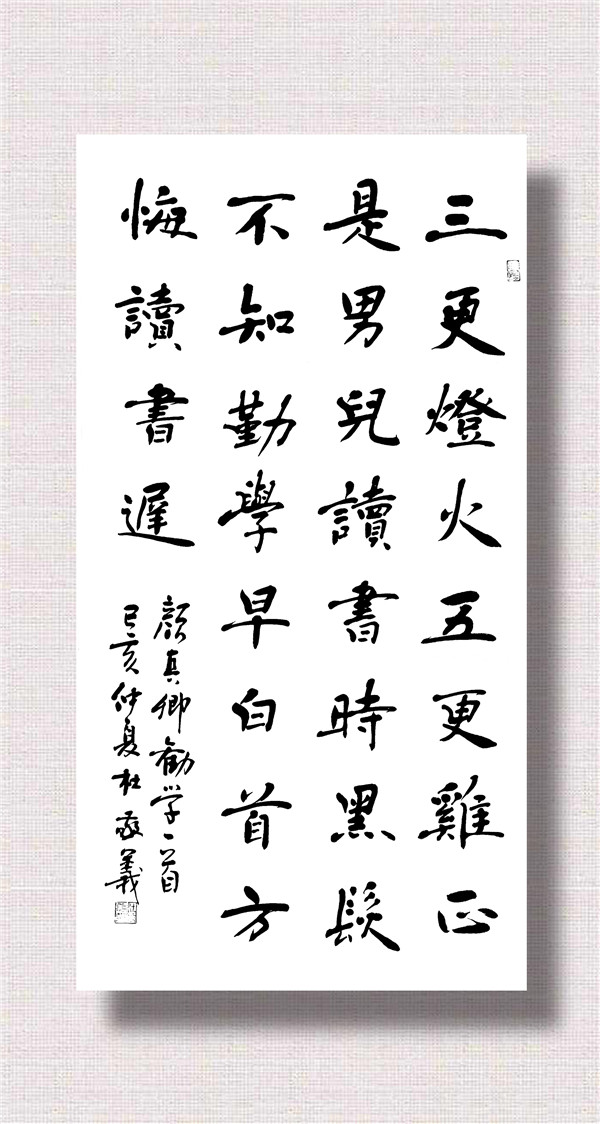 三更燈火五更雞正
是男兒讀書時黑髮
不知勤學早白首方
悔讀書遲
顔真卿勸学一首
己亥仲夏杜敬義